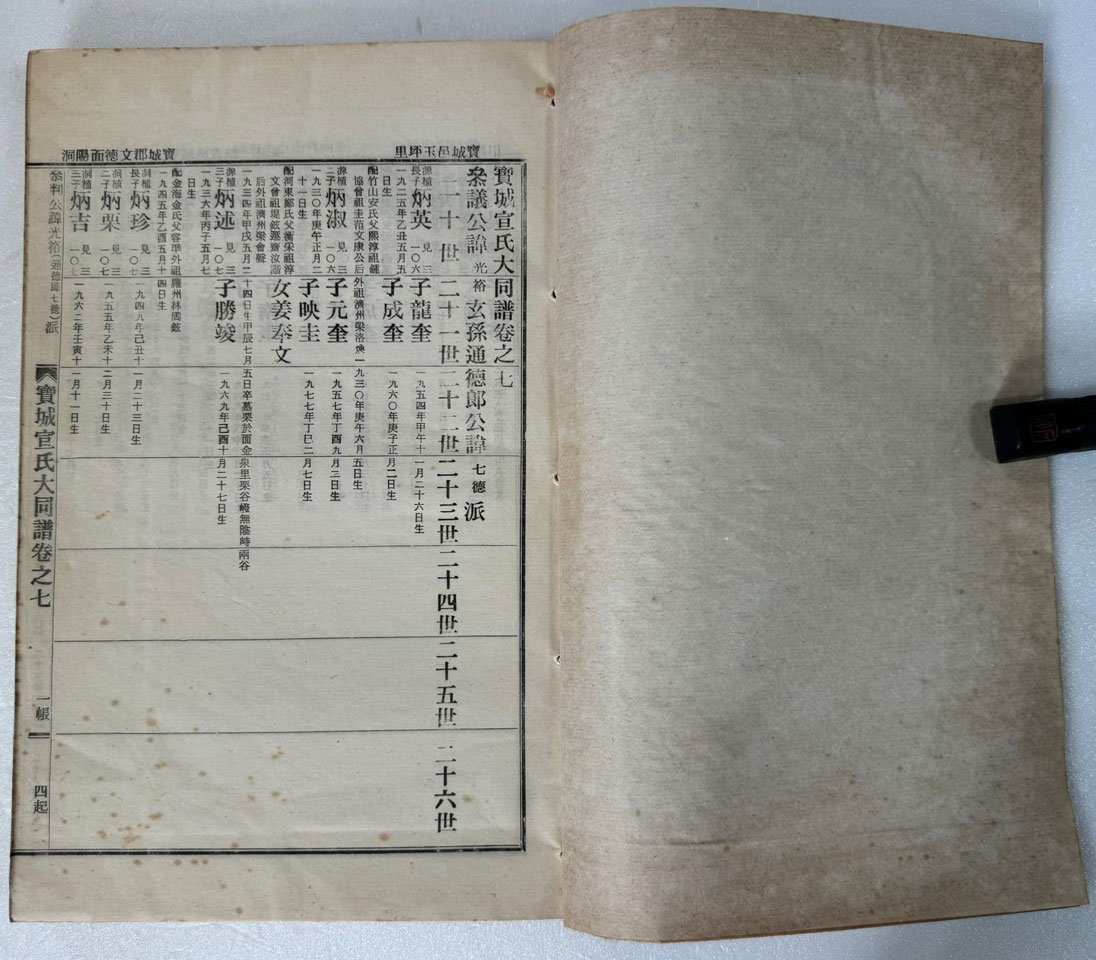 寶城邑玉坪里
寶城郡文德面陽洞
寶城宣氏大同譜卷之七
叅議公諱 光裕 玄孫通德郎公諱 七德 派
二十世
二十一世
二十二世
二十三世
二十四世
二十五世
二十六世
源植
長子
炳英
見三
一〇六
一九二五年乙丑五月五
日生
配竹山安氏父熙淳祖鍾
協曾祖圭范文康公后
外祖濟州梁洛煥
一九三〇年庚午六月五日生
子龍奎
一九五四年甲午十一月二十六日生
子成奎
一九六〇年庚子正月二日生
源植
二子
炳淑
見三
一〇六
一九三〇年庚午正月二
十一日生
配河東鄭氏父衡采祖淳
文曾祖堤鉉遯齋汝諧
后外祖濟州梁會聲
一九三四年甲戌五月二
十四日生甲辰七月
五日卒墓栗於面金泉里栗谷嶝無陰峙兩谷
子元奎
一九五七年丁酉九月三日生
子映圭
一九七七年丁巳二月七日生
女姜奉文
源植
三子
炳述
見三
一〇七
一九三六年丙子五月七
日生
配金海金氏父容準外祖
羅州林周鉉
一九四五年乙酉五月十
四日生
子勝竣
一九六九年己酉十月二十七日生
洞植
長子
炳珍
見三
一〇七
一九四九年己丑十
一月二十三日生
洞植
二子
炳栗
見三
一〇七
一九五五年乙未十
二月三十日生
洞植
三子
炳吉
見三
一〇七
一九六二年壬寅十
一月十一日生
公諱光裕(通德郎七德)派
寶城宣氏大同譜卷之七
一帳
四起